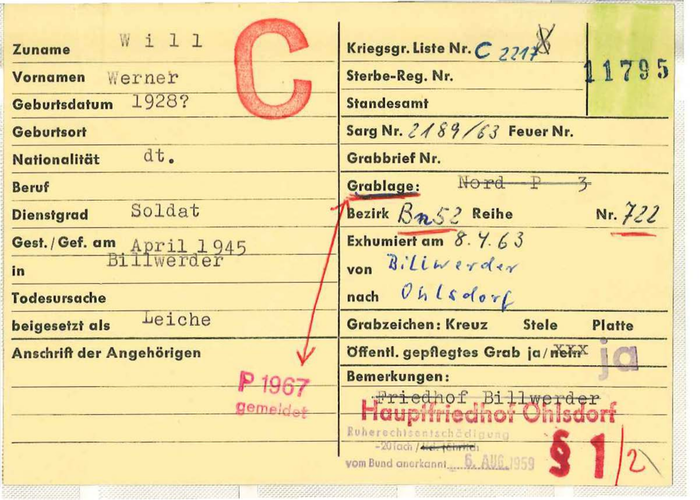 Zuname Will
Vornamen Werner
Geburtsdatum 1928?
Geburtsort
Nationalität dt.
Beruf
Dienstgrad Soldat
Gest./Gef. am April 1945
in Billwerder
Todesursache
beigesetzt als Leiche
Anschrift der Angehörigen
P 1967
gemeldet
C
Kriegsgr. Liste Nr. C 2217
11795
Sterbe-Reg. Nr.
Standesamt
Sarg Nr. 2189/63 Feuer Nr.
Grabbrief Nr.
Grablage: Nord P 3
Bezirk Bn52 Reihe Nr. 722
Exhumiert am 8.4.63
von Billwerder
nach Ohlsdorf
Grabzeichen: Kreuz Stele Platte
Öffentl. gepflegtes Grab ja/nein xxx ja
Bemerkungen:
Friedhof Billwerder
Hauptfriedhof Ohlsdorf
Ruherechtsentschädigung
-20fach/ jährlich
vom Bund anerkannt 6. AUG. 1959
§ 1/2